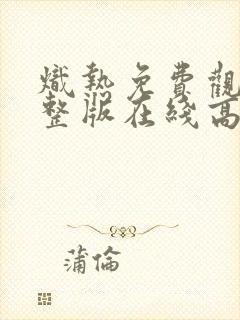 熾熱免費觀
整版在綫高
蒲倫